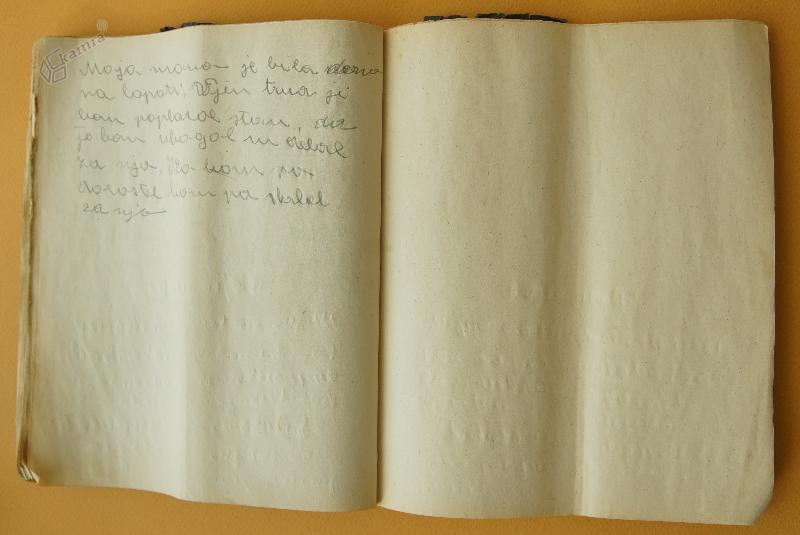 kamra
Moja mama je bila
na lopati, Njen trud ji
bom poplačal s tem, da
jo bom ubogal in delal
za njo. Ko bom pa
doraste bom pa skrbel
za njo